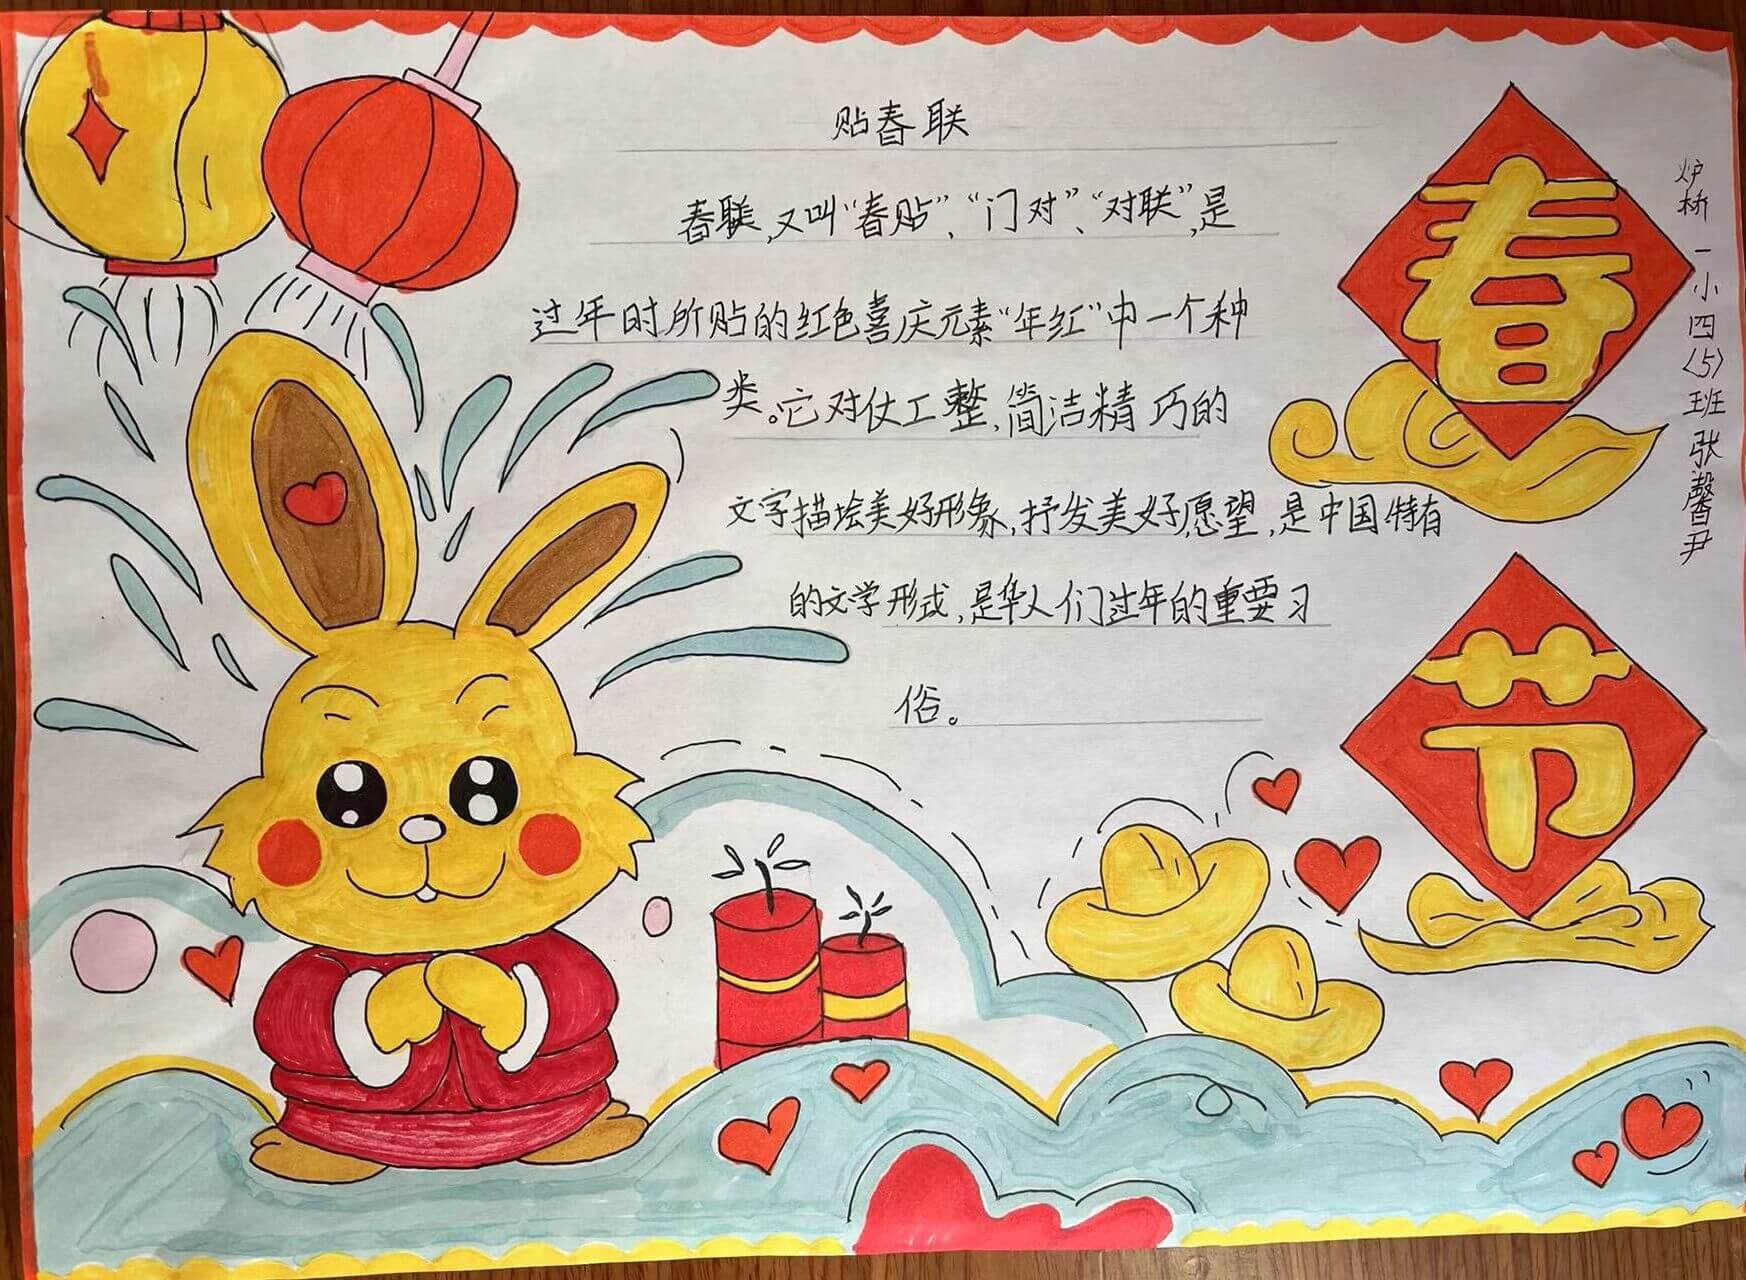 贴春联
春联,又叫“春贴”、“门对”、“对联”,是
过年时所贴的红色喜庆元素“年红”中一个种
类。它对仗工整,简洁精巧的
文字描绘美好形象,抒发美好愿望,是中国特有
的文学形式,是华人们过年的重要习
俗。
春
节
炉桥一小四(5)班张馨尹